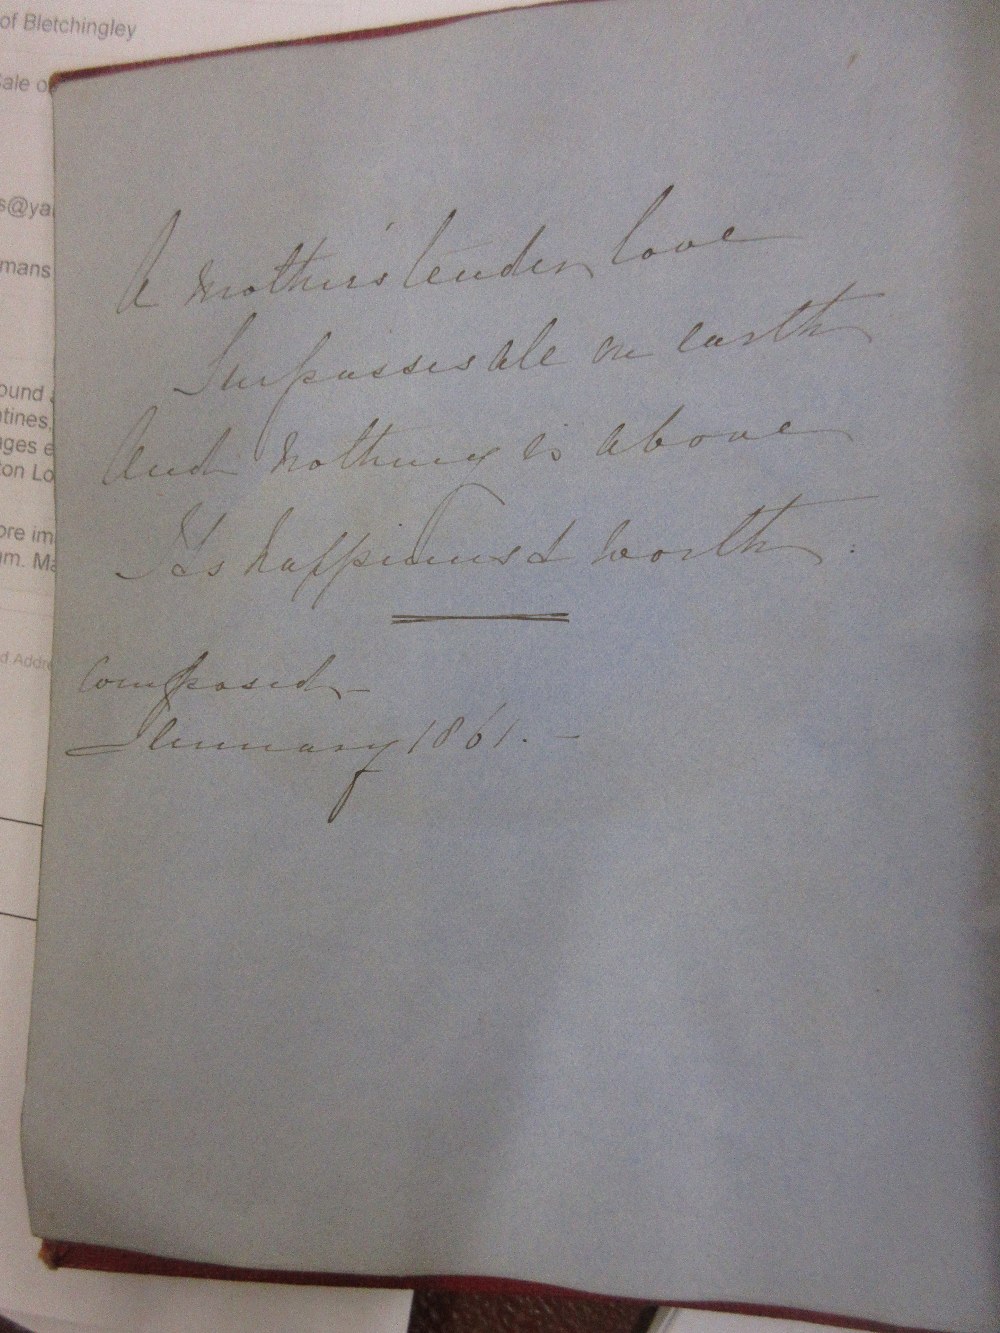 of Bletchingley
Sale o
s@ya
mans
ound a
ntines,
ages e
ton Lo
ore im
am. Ma
d Addre
A mother's tender love
Surpasses all on earth
And nothing is above
Its happiness & worth.
Composed –
January 1861. –